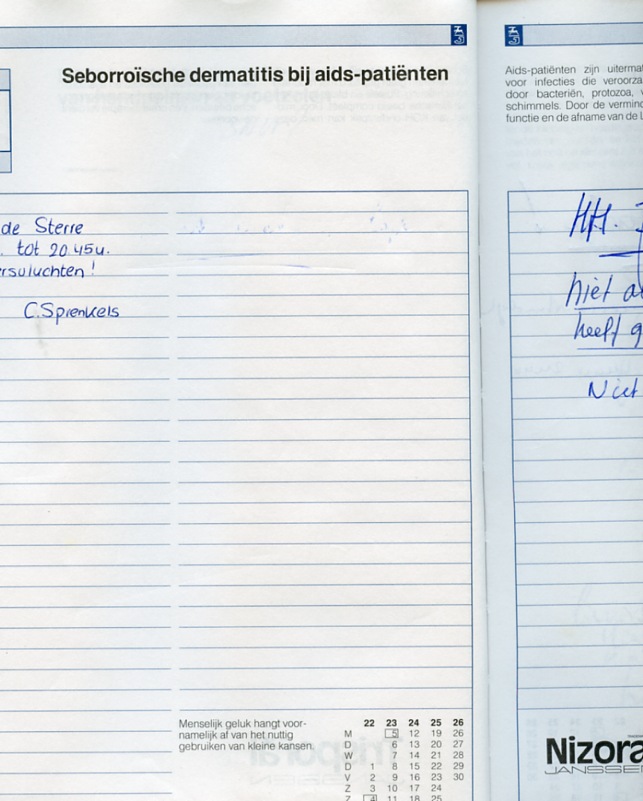 Seborroïsche dermatitis bij aids-patiënten
de Sterre
. tot 20.45u.
C.Sprenkels
Menselijk geluk hangt voor-
namelijk af van het nuttig
gebruiken van kleine kansen.
22 23 24 25 26
M 5 12 19 26
D 6 13 20 27
W 7 14 21 28
D 1 8 15 22 29
V 2 9 16 23 30
Z 3 10 17 24
Z 4 11 18 25
Aids-patiënten zijn uitermat
voor infecties die veroorza
door bacteriën, protozoa, v
schimmels. Door de vermind
functie en de afname van de L
HH.
niet a
heeft g
Niet
Nizora
JANSSEN